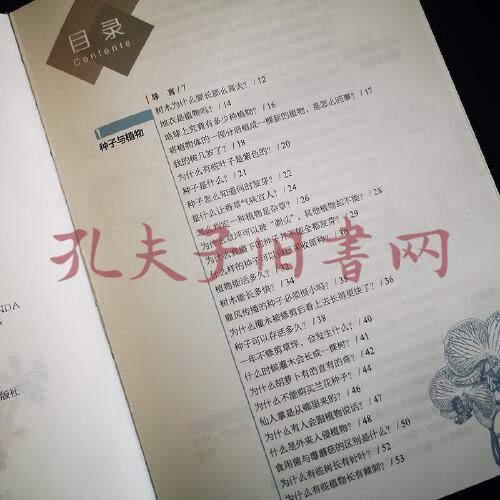 目录
Contents
导 言 / 7
1
种子与植物
树木为什么要长那么高大? / 12
地衣是植物吗? / 14
地球上究竟有多少种植物? / 16
将植物体的一部分培植成一棵新的植物,是怎么回事? / 17
我的树几岁了? / 18
为什么有些叶子是紫色的? / 20
种子是什么? / 21
种子怎么知道何时发芽? / 22
是什么让香草气味宜人? / 24
/ 26
为什么草坪可以被“剃头”,其他植物却不能? / 28
/ 29
/ 30
植物能活多久? / 32
树木能长多快? / 34
靠风传播的种子必须很小吗? / 35
为什么灌木被修剪后看上去长得更快了? / 36
种子可以存活多久? / 38
一年不修剪草坪,会发生什么? / 40
什么时候灌木会长成一棵树? / 41
为什么胡萝卜有的直有的弯? / 42
为什么不能购买兰花种子? / 44
仙人掌是从哪里来的? / 46
为什么有人会跟植物说话? / 47
什么是外来入侵植物? / 48
食用菌与毒蘑菇的区别是什么? / 50
为什么有些树长有针叶? / 52
为什么有些植物长有棘刺? / 53
NDA
版社
孔夫子旧书网